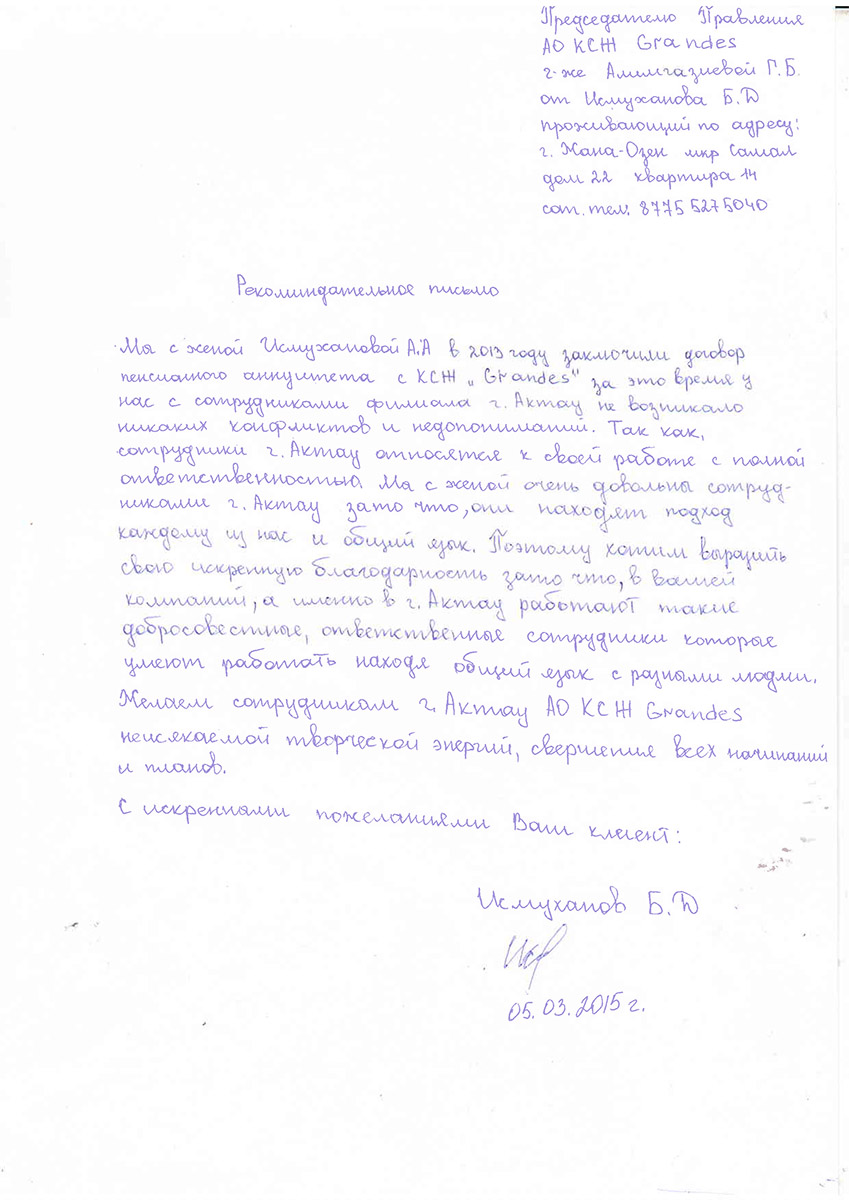 Председателю Правления
АО КСЖ Grandes
г-же Алимгазиевой Г.Б.
от Исмуханова Б.Д
проживающий по адресу:
г. Жана-Озен мкр Самал
дом 22 квартира 14
сот. тел: 8775 5275040
Рекоминдательное письмо
Мы с женой Исмухановой А.А в 2013 году заключили договор
пенсионного аннуитета с КСЖ „Grandes" за это время у
нас с сотрудниками филиала г. Актау не возникало
никаких конфликтов и недопониманий. Так как,
сотрудники г. Актау относятся к своей работе с полной
ответственностью. Мы с женой очень довольны сотруд-
никами г. Актау зато что, они находят подход
каждому из нас и общий язык. Поэтому хотим выразить
свою искренную благодарность зато что, в вашей
компаний, а именно в г. Актау работают такие
добросовестные, ответственные сотрудники которые
умеют работать находя общий язык с разными людми.
Желаем сотрудникам г. Актау АО КСЖ Grandes
неисякаемой творческой энергий, свершения всех начинаний
и планов.
С искренными пожеланиями Ваш клиент:
Исмуханов Б.Д
05.03.2015 г.